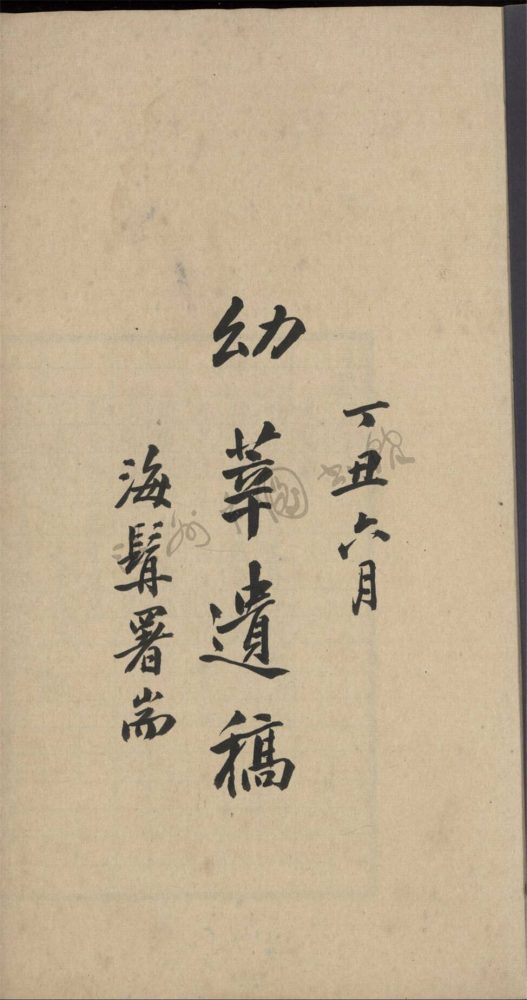 丁丑六月
幼莘遺稿
海髯署耑